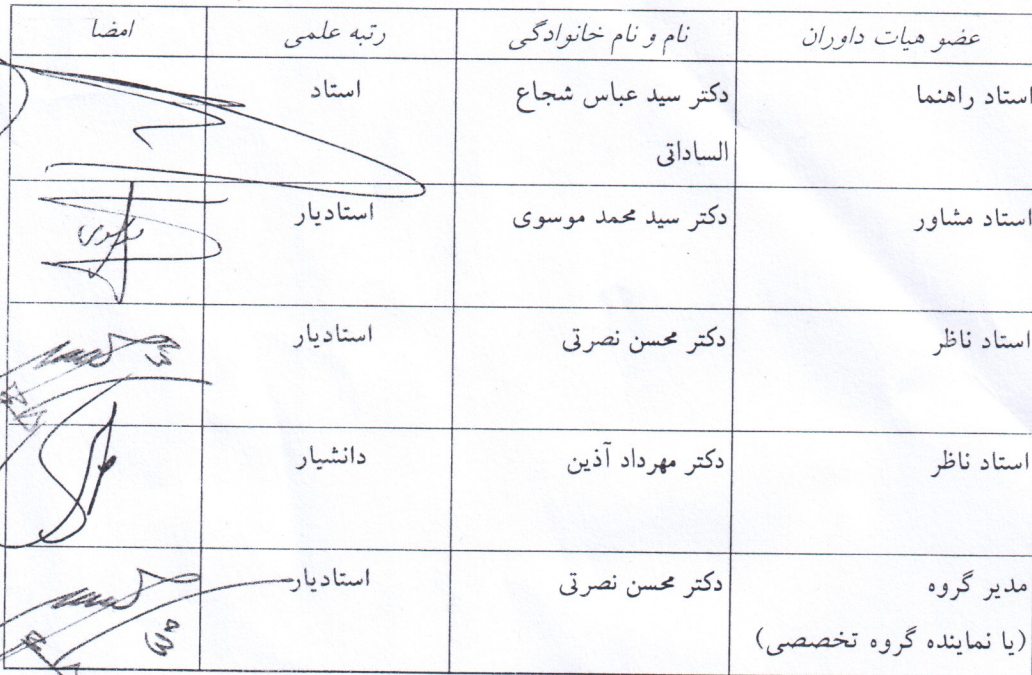 عضو هیات داوران نام و نام خانوادگی رتبه علمی امضا
استاد راهنما دکتر سید عباس شجاع استاد
الساداتی
استاد مشاور دکتر سید محمد موسوی استادیار
استاد ناظر دکتر محسن نصرتی استادیار
استاد ناظر دکتر مهرداد آذین دانشیار
مدیر گروه دکتر محسن نصرتی استادیار
(یا نماینده گروه تخصصی)